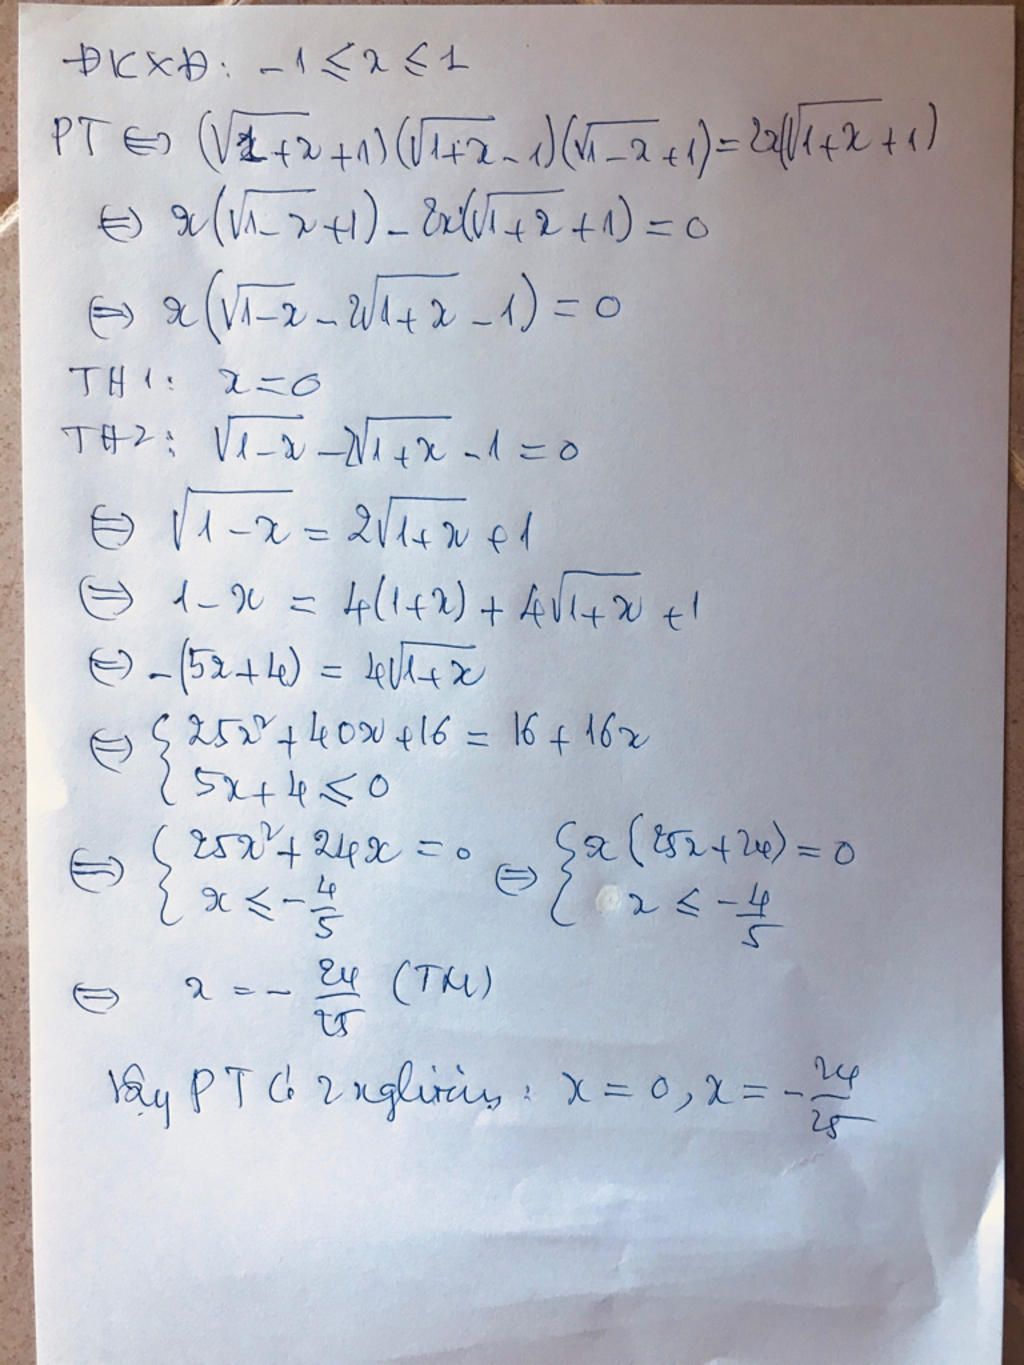 ĐKXĐ: -1 ≤ x ≤ 1
PT ⇔ (√1+x + 1)(√1+x - 1)(√1-x + 1) = 2x(√1+x + 1)
⇔ x(√1-x + 1) - 2x(√1+x + 1) = 0
⇔ x(√1-x - 2√1+x - 1) = 0
TH1: x = 0
TH2: √1-x - 2√1+x - 1 = 0
⇔ √1-x = 2√1+x + 1
⇔ 1-x = 4(1+x) + 4√1+x + 1
⇔ -(5x+4) = 4√1+x
⇔ { 25x² + 40x + 16 = 16 + 16x
5x + 4 ≤ 0
⇔ { 25x² + 24x = 0 ⇔ { x(25x+24) = 0
x ≤ -4/5 x ≤ -4/5
⇔ x = -24/25 (TM)
Vậy PT có 2 nghiệm: x = 0, x = -24/25